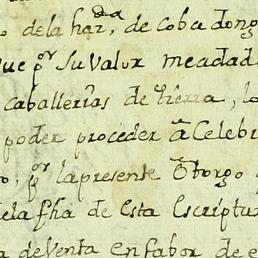 o dela haz.da, de coba dong
que pr. su valor meadad
caballerias de tierra, lo
poder proceder â Celebr
o, pr. la presente Otorgo
dela fha de esta Escriptu
a deventa en fabor de e